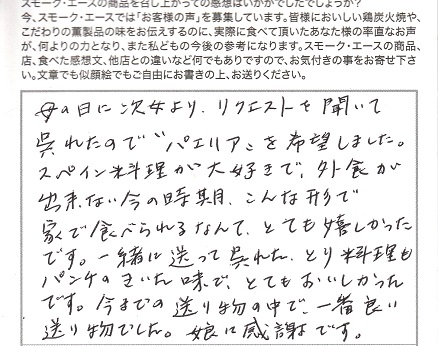 スモーク・エースの商品を召し上がっての感想はいかがでしたでしょうか?
今、スモーク・エースでは「お客様の声」を募集しています。皆様においしい鶏炭火焼や、
こだわりの薫製品の味をお伝えするのに、実際に食べて頂いたあなた様の率直なお声
が、何よりの力となり、また私どもの今後の参考になります。スモーク・エースの商品、
店、食べた感想文、他店との違いなど何でもありですので、お気付きの事をお寄せ下さ
い。文章でも似顔絵でもご自由にお書きの上、お送りください。
母の日に次女より、リクエストを聞いて
呉れたので“パエリア”を希望しました。
スペイン料理が大好きで、外食が
出来ない今の時期、こんな形で
家で食べられるなんて、とても嬉しかった
です。一緒に送って呉れた、とり料理も
パンチのきいた味で、とてもおいしかった
です。今までの送り物の中で、一番良い
送り物でした。娘に感謝です。